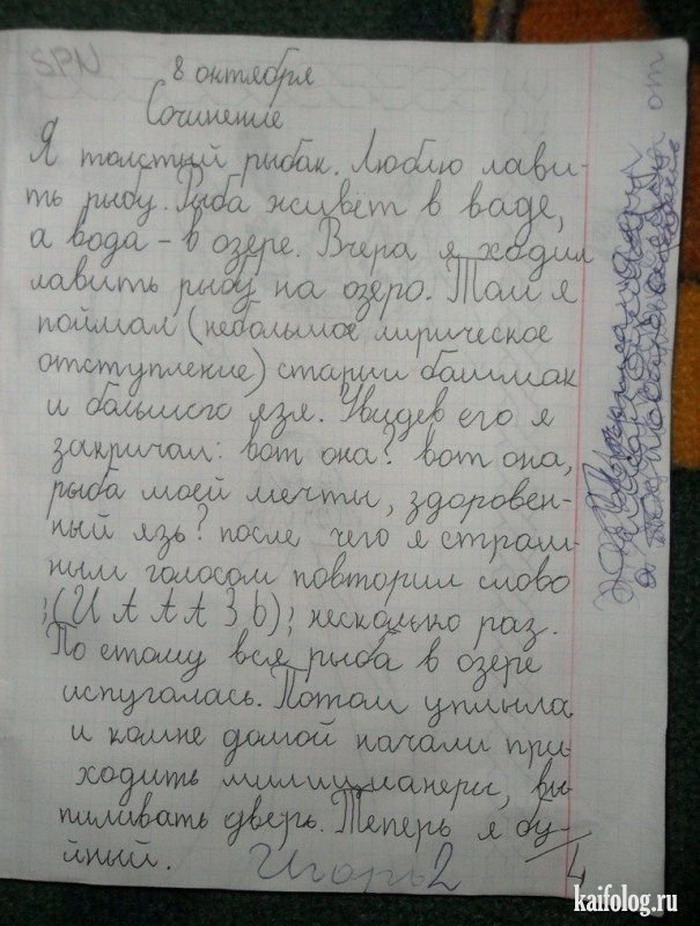 SPN
8 октября
Сочинение
Я толстный рыбак. Люблю лави-
ть рыбу. Рыба живёт в ваде,
а вода - в озере. Вчера я ходил
лавить рыбу на озеро. Там я
поймал (небольшое лирическое
отступление) старии башмак
и большого язя. Увидев его я
закричал: вот она? вот она,
рыба моей мечты, здоровен-
ный язь? после чего я страш-
ным голосом повторил слово
;(И А А А З Ь); несколько раз.
По етому вся рыба в озере
испугалась. Потом уплыла
и комне домой начали при-
ходить милицианеры, вы-
пиливать дверь. Теперь я бу-
йный.
Игорь2
4
от
kaifolog.ru